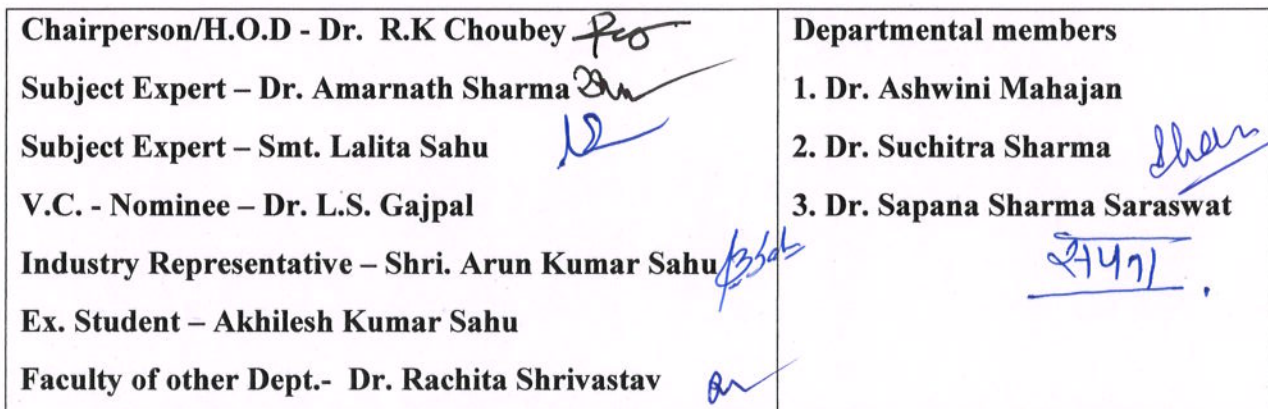 Chairperson/H.O.D - Dr. R.K Choubey
Subject Expert – Dr. Amarnath Sharma
Subject Expert – Smt. Lalita Sahu
V.C. - Nominee – Dr. L.S. Gajpal
Industry Representative – Shri. Arun Kumar Sahu
Ex. Student – Akhilesh Kumar Sahu
Faculty of other Dept.- Dr. Rachita Shrivastav
Departmental members
1. Dr. Ashwini Mahajan
2. Dr. Suchitra Sharma
3. Dr. Sapana Sharma Saraswat
सपना